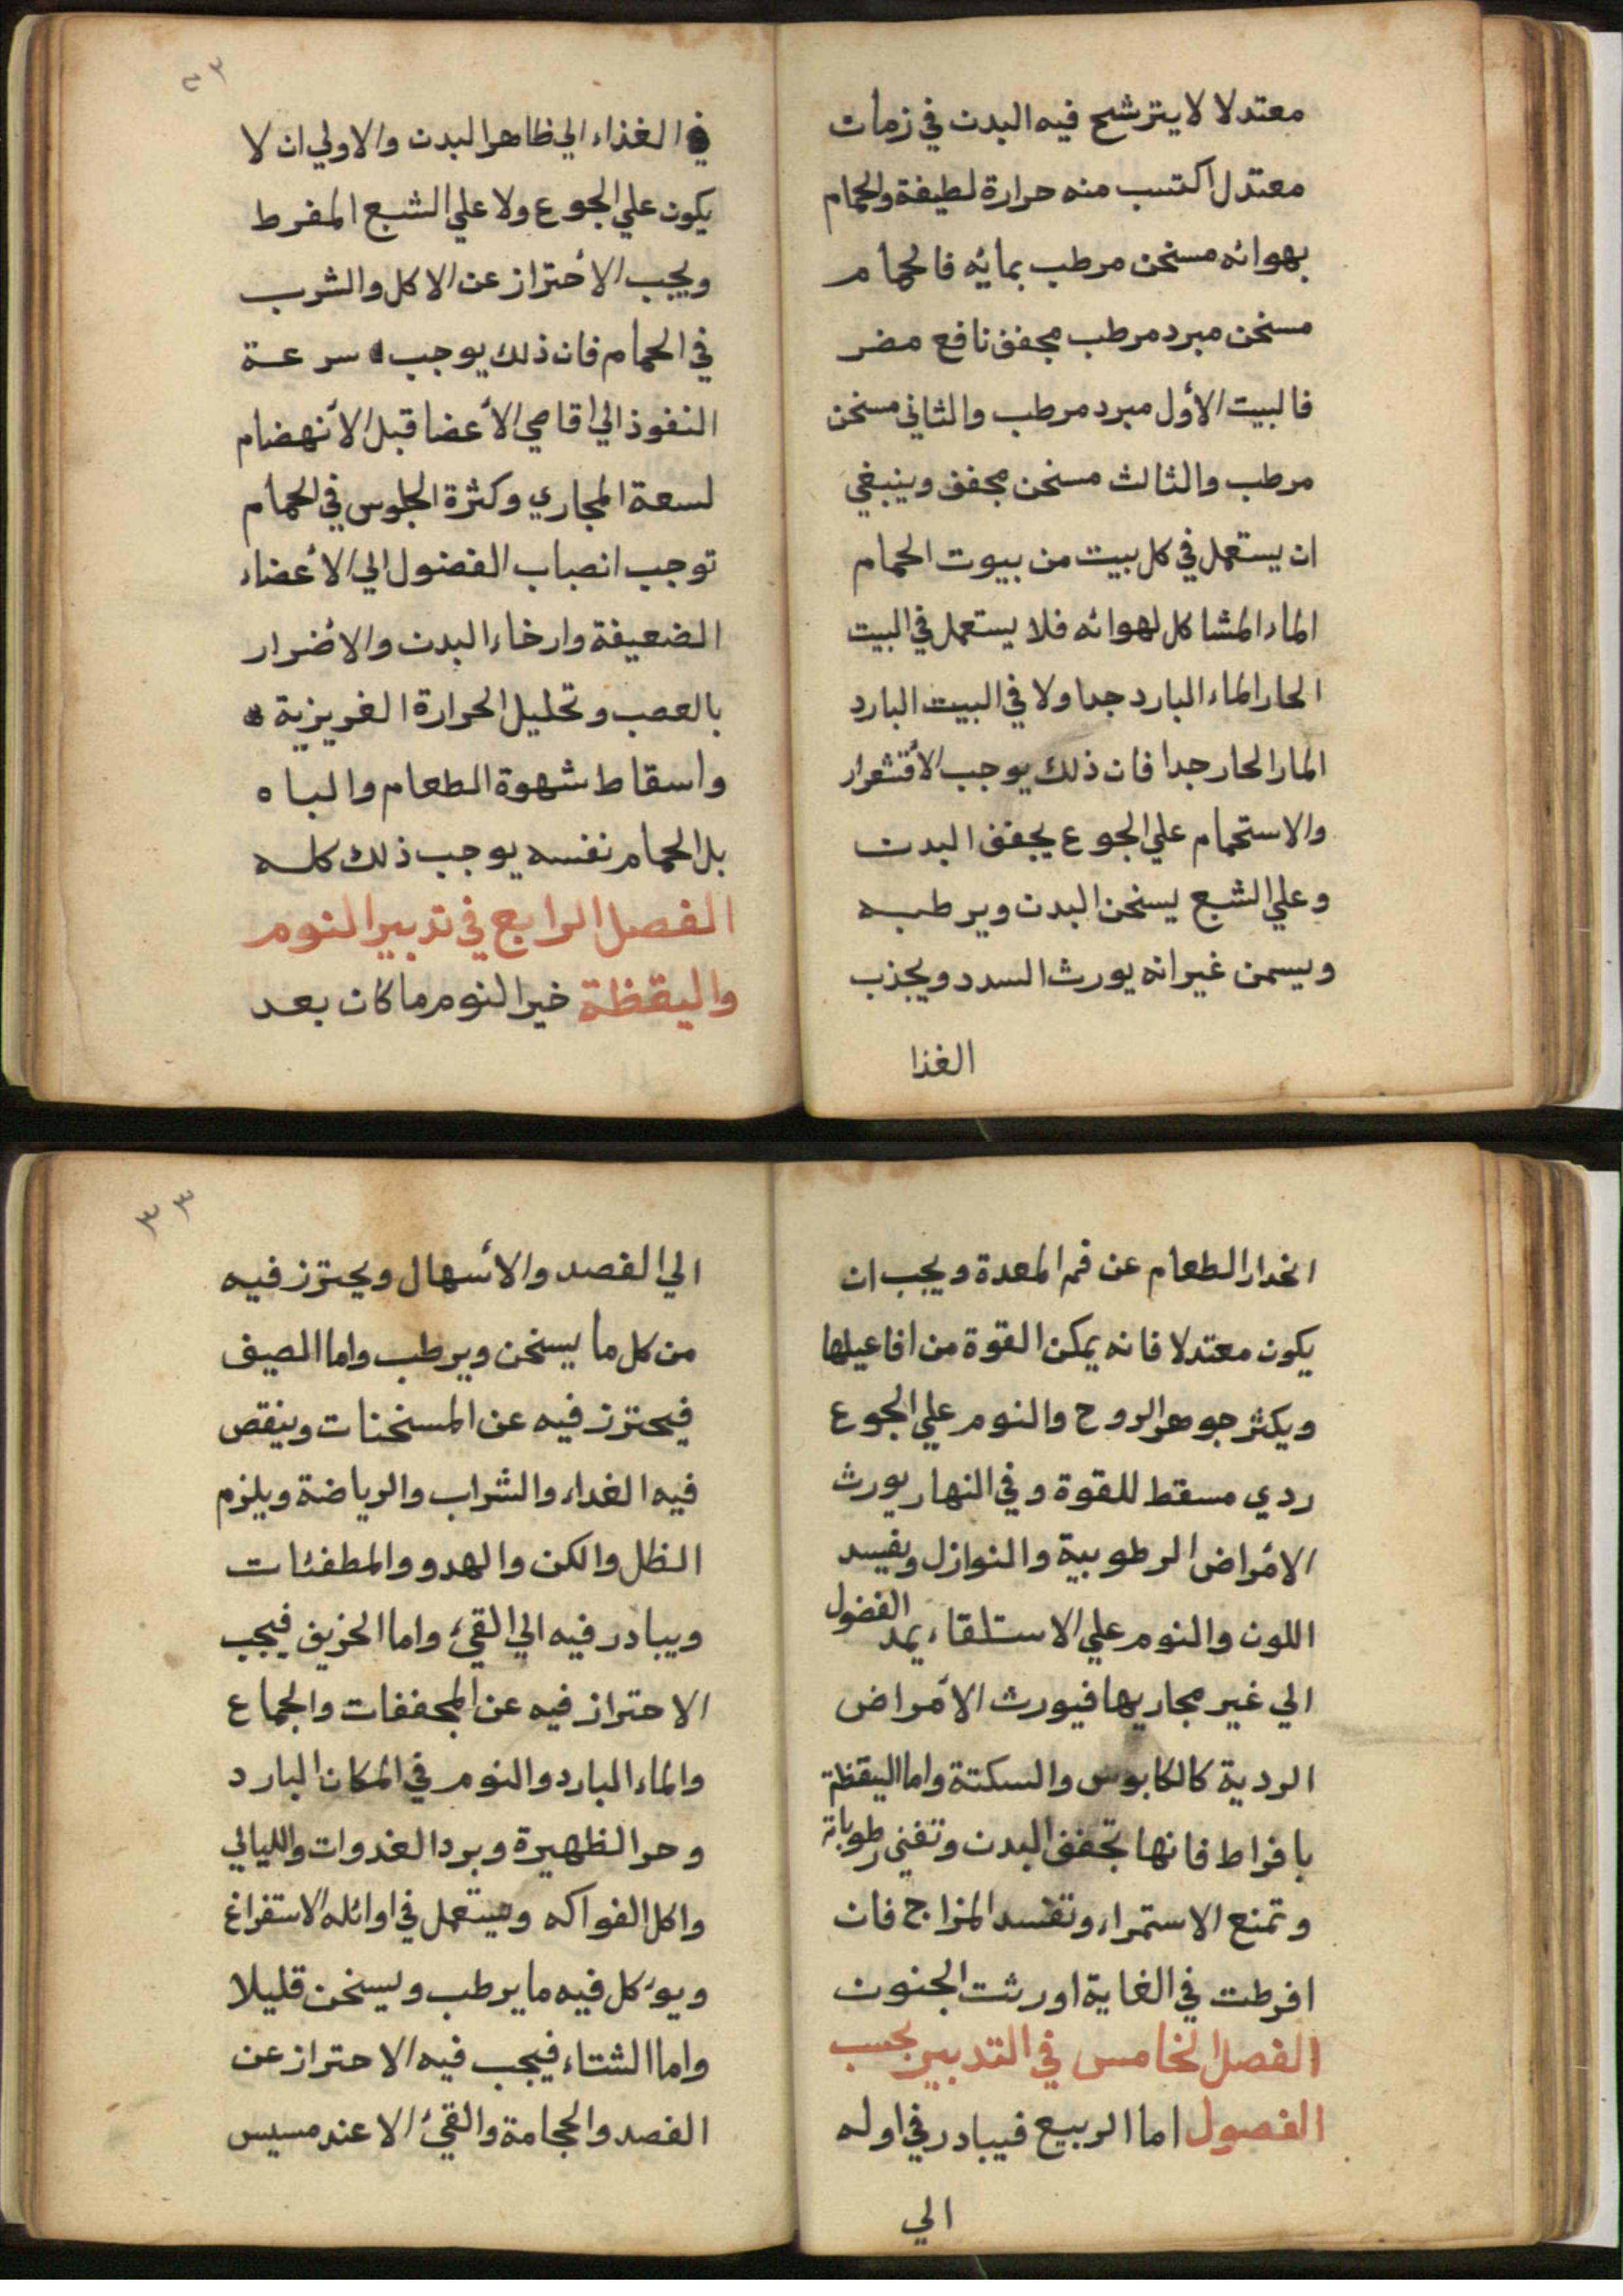 معتدلا لا يترشح فيه البدن في زمان
معتدل اكتسب منه حرارة لطيفة والحمام
بهوائه مسخن مرطب بمائه فالحمام
مسخن مبرد مرطب مجفف نافع مضر
فالبيت الأول مبرد مرطب والثاني مسخن
مرطب والثالث مسخن مجفف وينبغي
ان يستعمل في كل بيت من بيوت الحمام
الماء المشاكل لهوائه فلا يستعمل في البيت
الحار الماء البارد جدا ولا في البيت البارد
الماء الحار جدا فان ذلك يوجب الأقشعرار
والاستحمام علي الجوع يجفف البدن
وعلي الشبع يسخن البدن ويرطبه
ويسمن غير انه يورث السدد ويجذب
الغذا
٣٢
الغذاء الي ظاهر البدن والاولي ان لا
يكون علي الجوع ولا علي الشبع المفرط
ويجب الأحتراز عن الاكل والشرب
في الحمام فان ذلك يوجب سرعة
النفوذ الي اقاصي الأعضا قبل الأنهضام
لسعة المجاري وكثرة الجلوس في الحمام
توجب انصباب الفضول الي الأعضاء
الضعيفة وارخاء البدن والأضرار
بالعصب وتحليل الحرارة الغريزية
واسقاط شهوة الطعام والباه
بل الحمام نفسه يوجب ذلك كله
الفصل الرابع في تدبير النوم
واليقظة خير النوم ما كان بعد
انحدار الطعام عن فم المعدة ويجب ان
يكون معتدلا فانه يمكن القوة من افاعيلها
ويكثر جوهر الروح والنوم علي الجوع
ردي مسقط للقوة وفي النهار يورث
الأمراض الرطوبية والنوازل ويفسد
اللون والنوم علي الاستلقاء يمد الفضول
الي غير مجاريها فيورث الأمراض
الردية كالكابوس والسكتة واما اليقظة
بافراط فانها تجفف البدن وتفني رطوباته
وتمنع الاستمراء وتفسد المزاج فان
افرطت في الغاية اورثت الجنون
الفصل الخامس في التدبير بحسب
الفصول اما الربيع فيبادر في اوله
الي
٣٣
الي الفصد والأسهال ويحترز فيه
من كل ما يسخن ويرطب واما الصيف
فيحترز فيه عن المسخنات وينقص
فيه الغداء والشراب والرياضة ويلزم
الظل والكن والهدو والمطفئات
ويبادر فيه الي القئ واما الخريف فيجب
الاحتراز فيه عن المجففات والجماع
والماء البارد والنوم في المكان البارد
وحر الظهيرة وبرد الغدوات والليالي
واكل الفواكه ويستعمل في اوائله الاستفراغ
ويوكل فيه ما يرطب ويسخن قليلا
واما الشتاء فيجب فيه الاحتراز عن
الفصد والحجامة والقئ الا عند مسيس